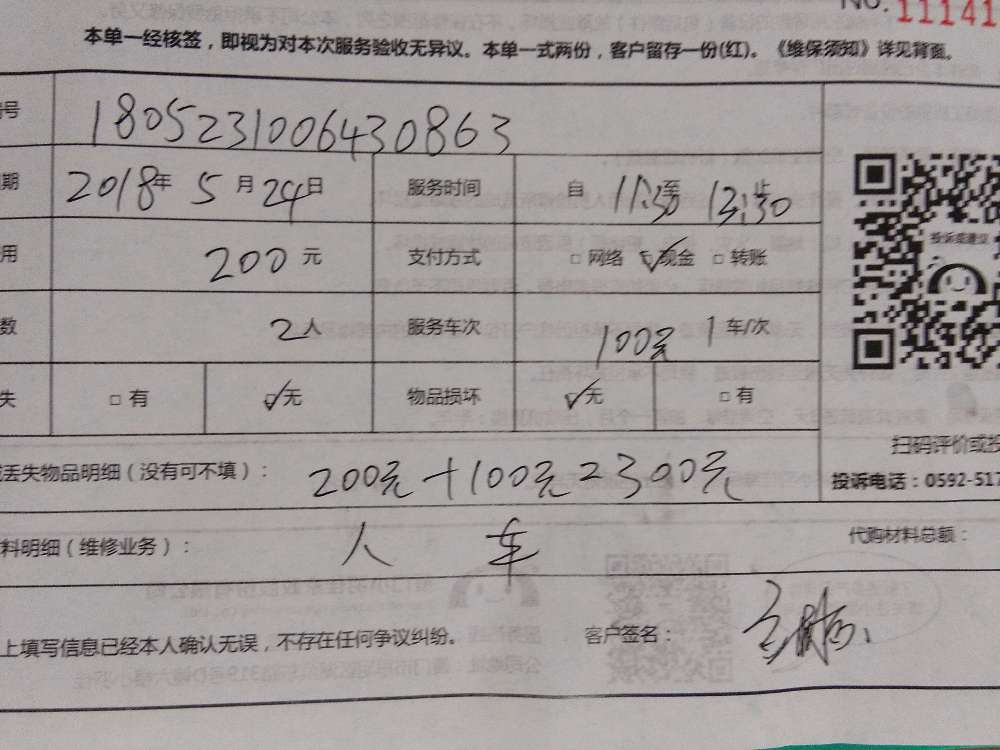 NO.11141
本单一经核签，即视为对本次服务验收无异议。本单一式两份，客户留存一份(红)。《维保须知》详见背面。
号 1805231006430863
期 2018年 5月24日 服务时间 自 11:30 至 13:30 止
用 200元 支付方式 □ 网络 ☑ 现金 □ 转账
投诉或建议
数 2人 服务车次 100元 1 车/次
失 □ 有 ☑ 无 物品损坏 ☑ 无 □ 有
扫码评价或投
丢失物品明细（没有可不填）： 200元+100元=300元
投诉电话：0592-517
料明细（维修业务）： 人 车 代购材料总额：
上填写信息已经本人确认无误，不存在任何争议纠纷。 客户签名：